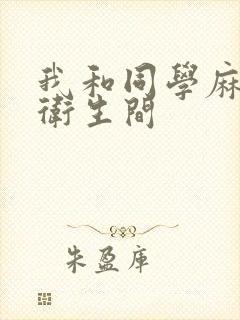 我和同學麻
衛生間
朱盈庫